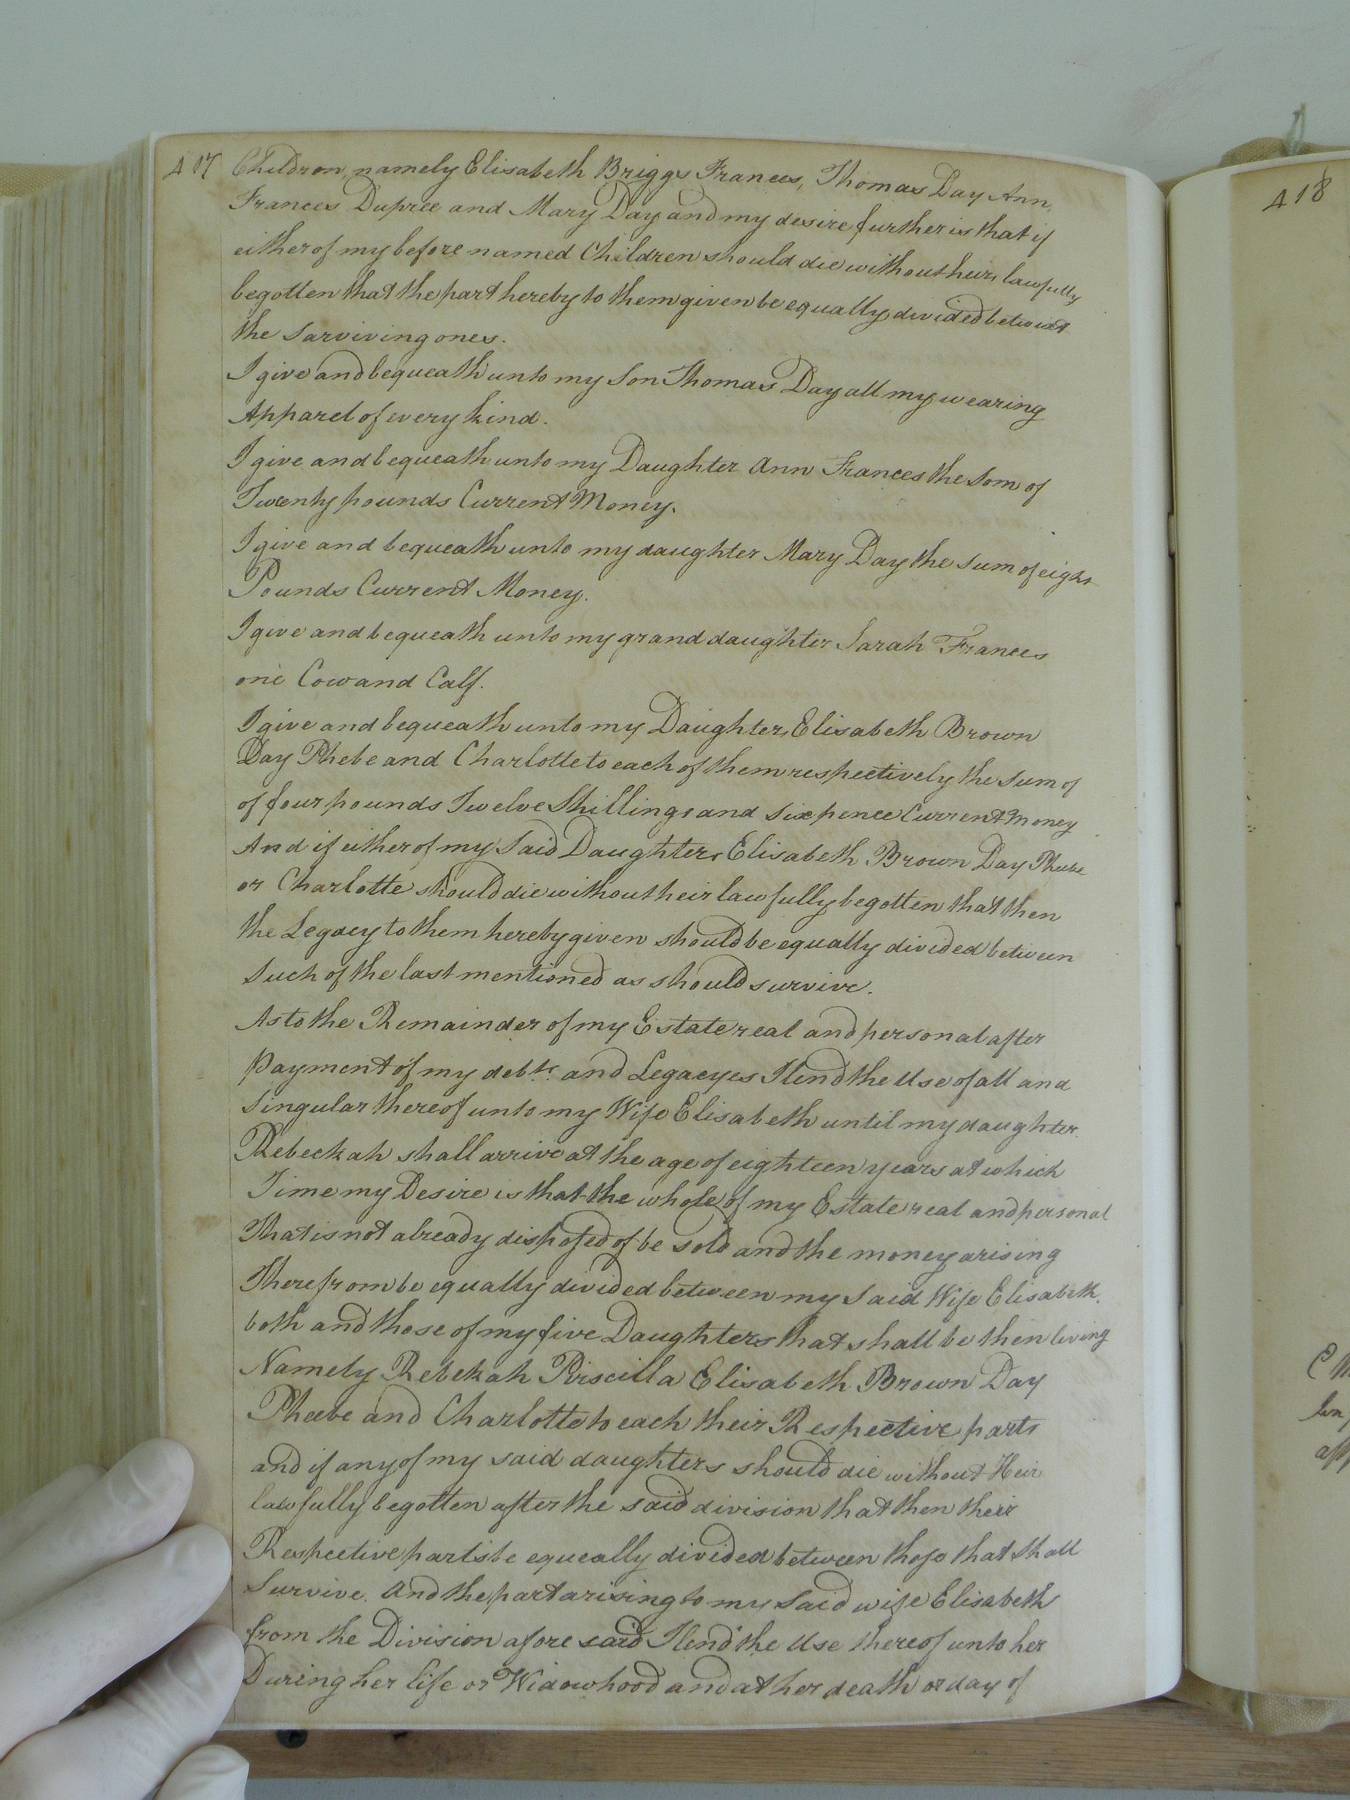 417
Children, namely Elisabeth Briggs Frances, Thomas Day Ann
Frances Dupree and Mary Day and my desire further is that if
either of my before named Children should die without heirs lawfully
begotten that the part hereby to them given be equally divided betwixt
the Sarviving ones.
I give and bequeath unto my Son Thomas Day all my wearing
Apparel of every kind.
I give and bequeath unto my Daughter Ann Frances the Som of
Twenty pounds Current Money.
I give and bequeath unto my daughter Mary Day the Sum of eight
Pounds Current Money.
I give and bequeath unto my grand daughter Sarah Frances
one Cow and Calf.
I give and bequeath unto my Daughters Elisabeth Brown
Day Phebe and Charlotte to each of them respectively the Sum of
of four pounds Twelve Shillings and Sixpence Current Money
And if either of my Said Daughters Elisabeth Brown Day Phebe
or Charlotte should die without heir lawfully begotten that then
the Legacy to them hereby given should be equally divided between
Such of the last mentioned as should survive.
As to the Remainder of my Estate real and personal after
Payment of my debts. and Legacyes I lend the Use of all and
Singular thereof unto my Wife Elisabeth until my daughter
Rebeckah shall arrive at the age of eighteen years at which
Time my Desire is that the whole of my Estate real and personal
That is not already disposed of be sold and the money arising
Therefrom be equally divided between my Said Wife Elisabeth.
both and those of my five Daughters that shall be then living
Namely Rebekah Priscilla Elisabeth Brown Day
Pheebe and Charlotte to each their Respective parts
and if any of my said daughters should die without Heir
lawfully begotten after the said division that then their
Respective parts be equeally divided between those that Shall
Survive. And the part arising to my Said wife Elisabeth
from the Division afore said I lend the Use thereof unto her
During her life or Widowhood and at her death or day of
418